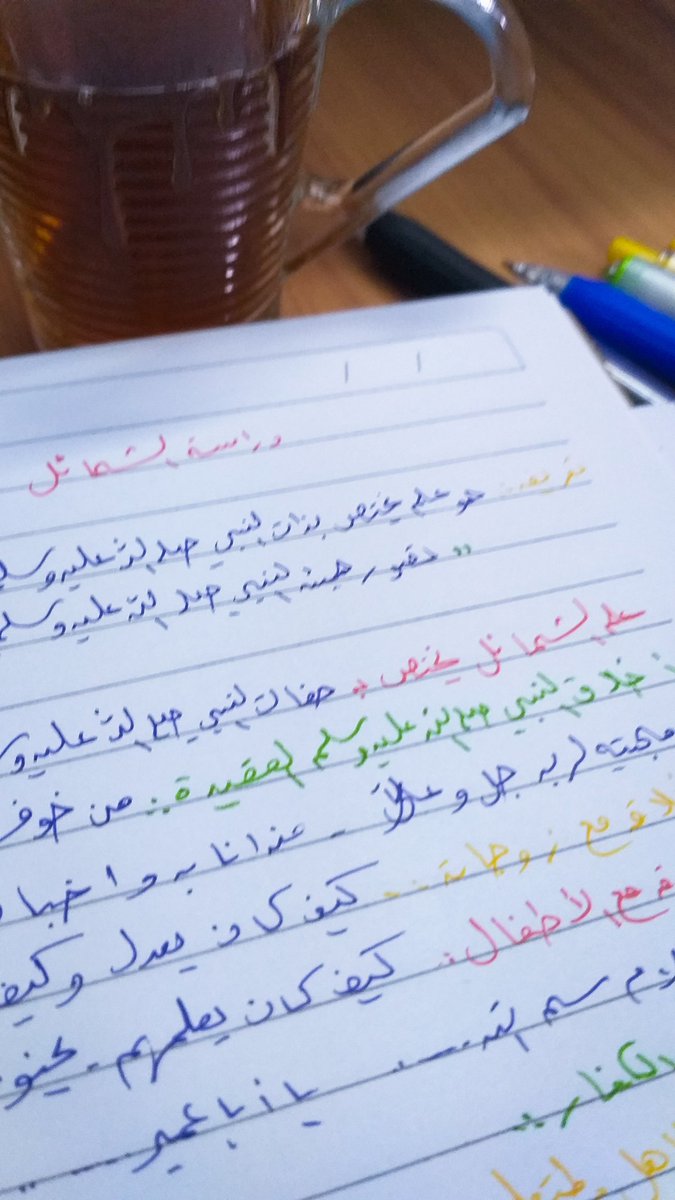 دراسة الشمائل
تعريف.. هو علم يختص بذات النبي صلى الله عليه وسلم
" هيئة النبي صلى الله عليه وسلم
علم الشمائل يختص بـ صفات النبي صلى الله عليه و
أخلاق النبي صلى الله عليه وسلم العقيدة.. من خوف
لربه جل وعلا
مع زوجاته... كيف كان يعدل وكيف
مع الأطفال. كيف كان يعلمهم.
سم الله....
يا أبا عمير ....
الكفار..